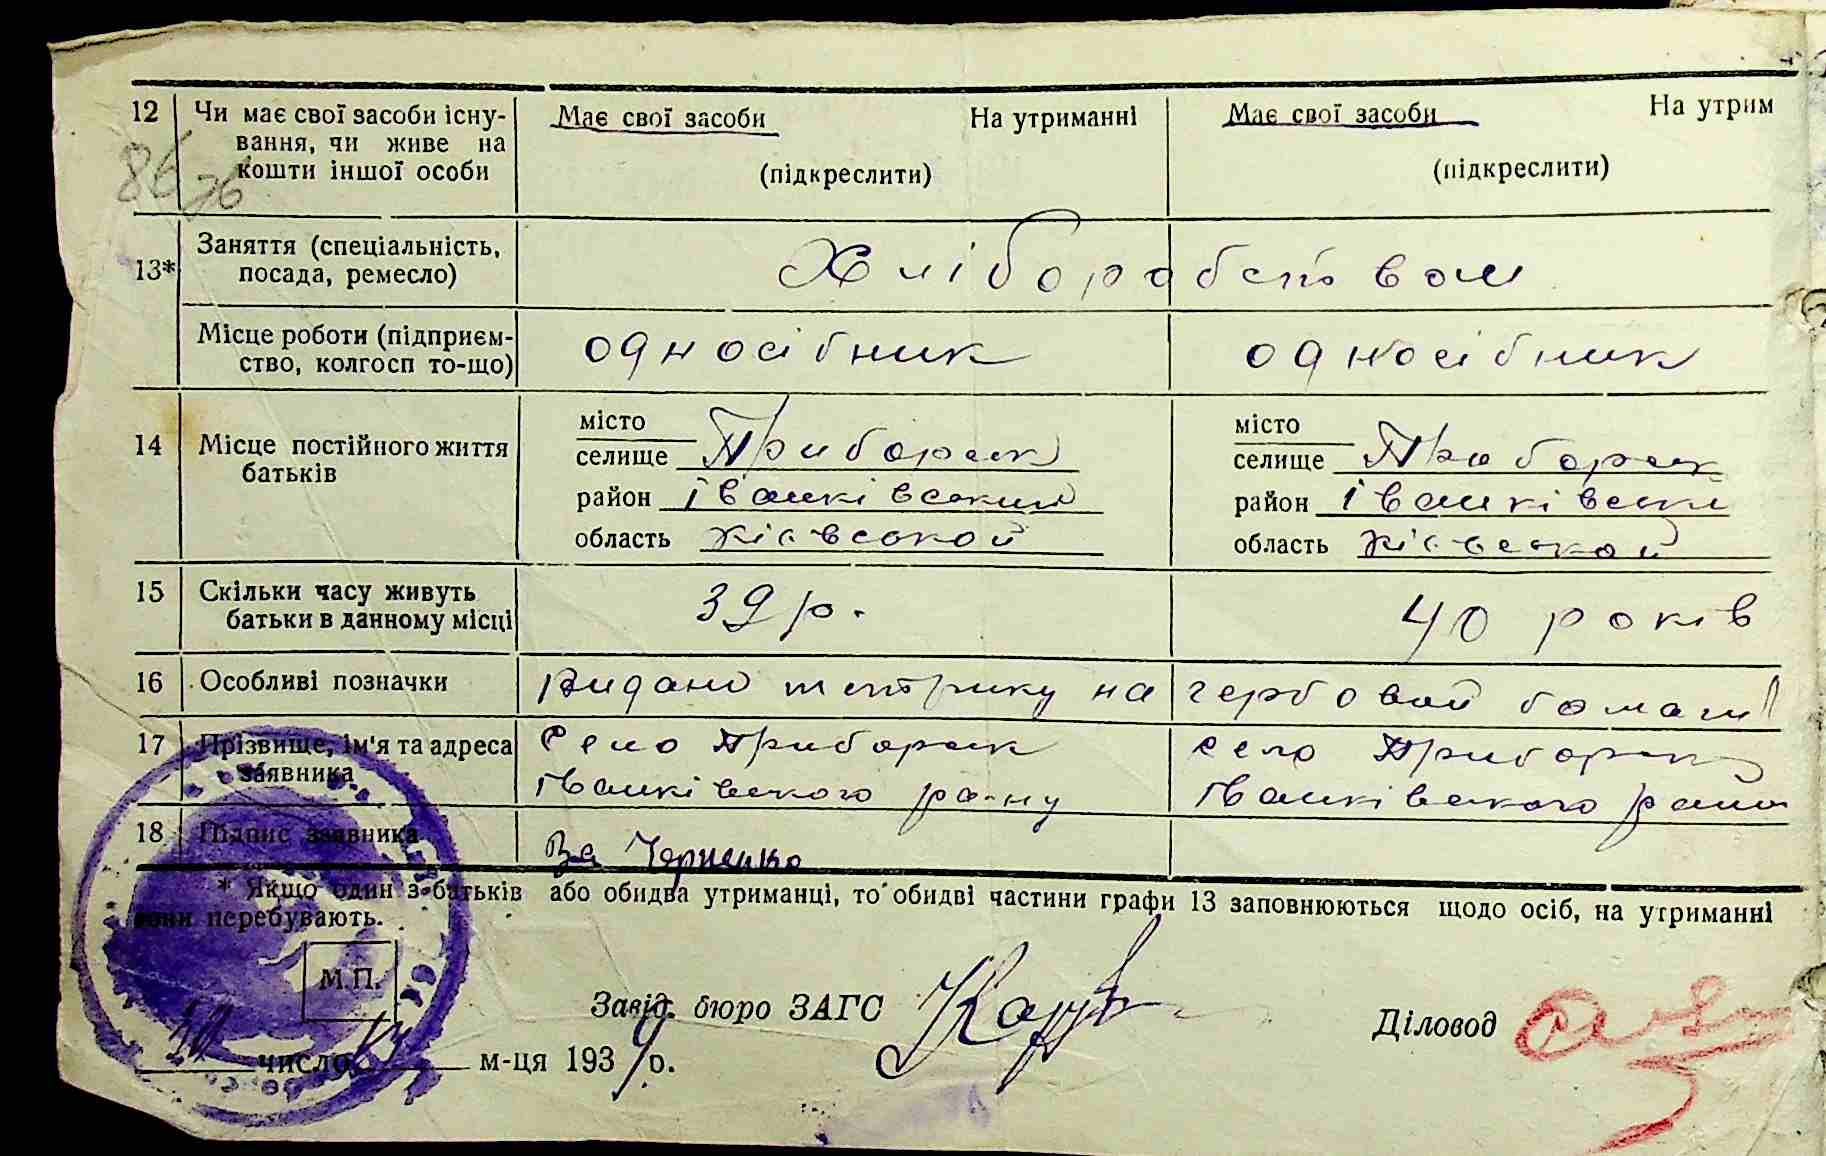 12 Чи має свої засоби існу- Має свої засоби На утриманні Має свої засоби На утрим
вання, чи живе на
кошти іншої особи (підкреслити) (підкреслити)
86
13* Заняття (спеціальність,
посада, ремесло) Хліборобством
Місце роботи (підприєм-
ство, колгосп то-що) односібник односібник
14 Місце постійного життя
батьків
місто місто
селище Приборськ селище Приборськ
район Іванківський район Іванківськи
область Київської область Київської
15 Скільки часу живуть
батьки в данному місці 39 р. 40 років
16 Особливі позначки Видано метрику на гербовой бомаги
17 Прізвище, ім'я та адреса
заявника
Село Приборськ село Приборськ
Іванківського ра-ну Іванківського
18 Підпис заявника За Черненко
* Якщо один з батьків або обидва утриманці, то обидві частини графи 13 заповнюються щодо осіб, на утриманні
вони перебувають.
М.П.
Завід. бюро ЗАГС Діловод
число м-ця 1939 р.